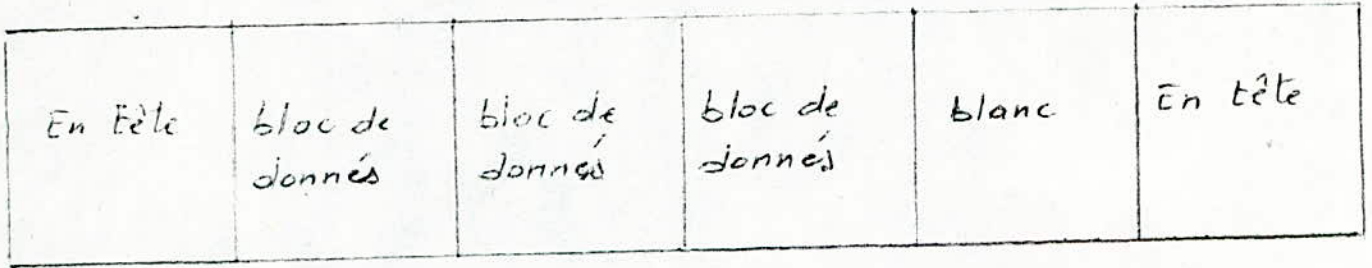 En tête
bloc de
donnés
bloc de
donnés
bloc de
donnés
blanc
En tête